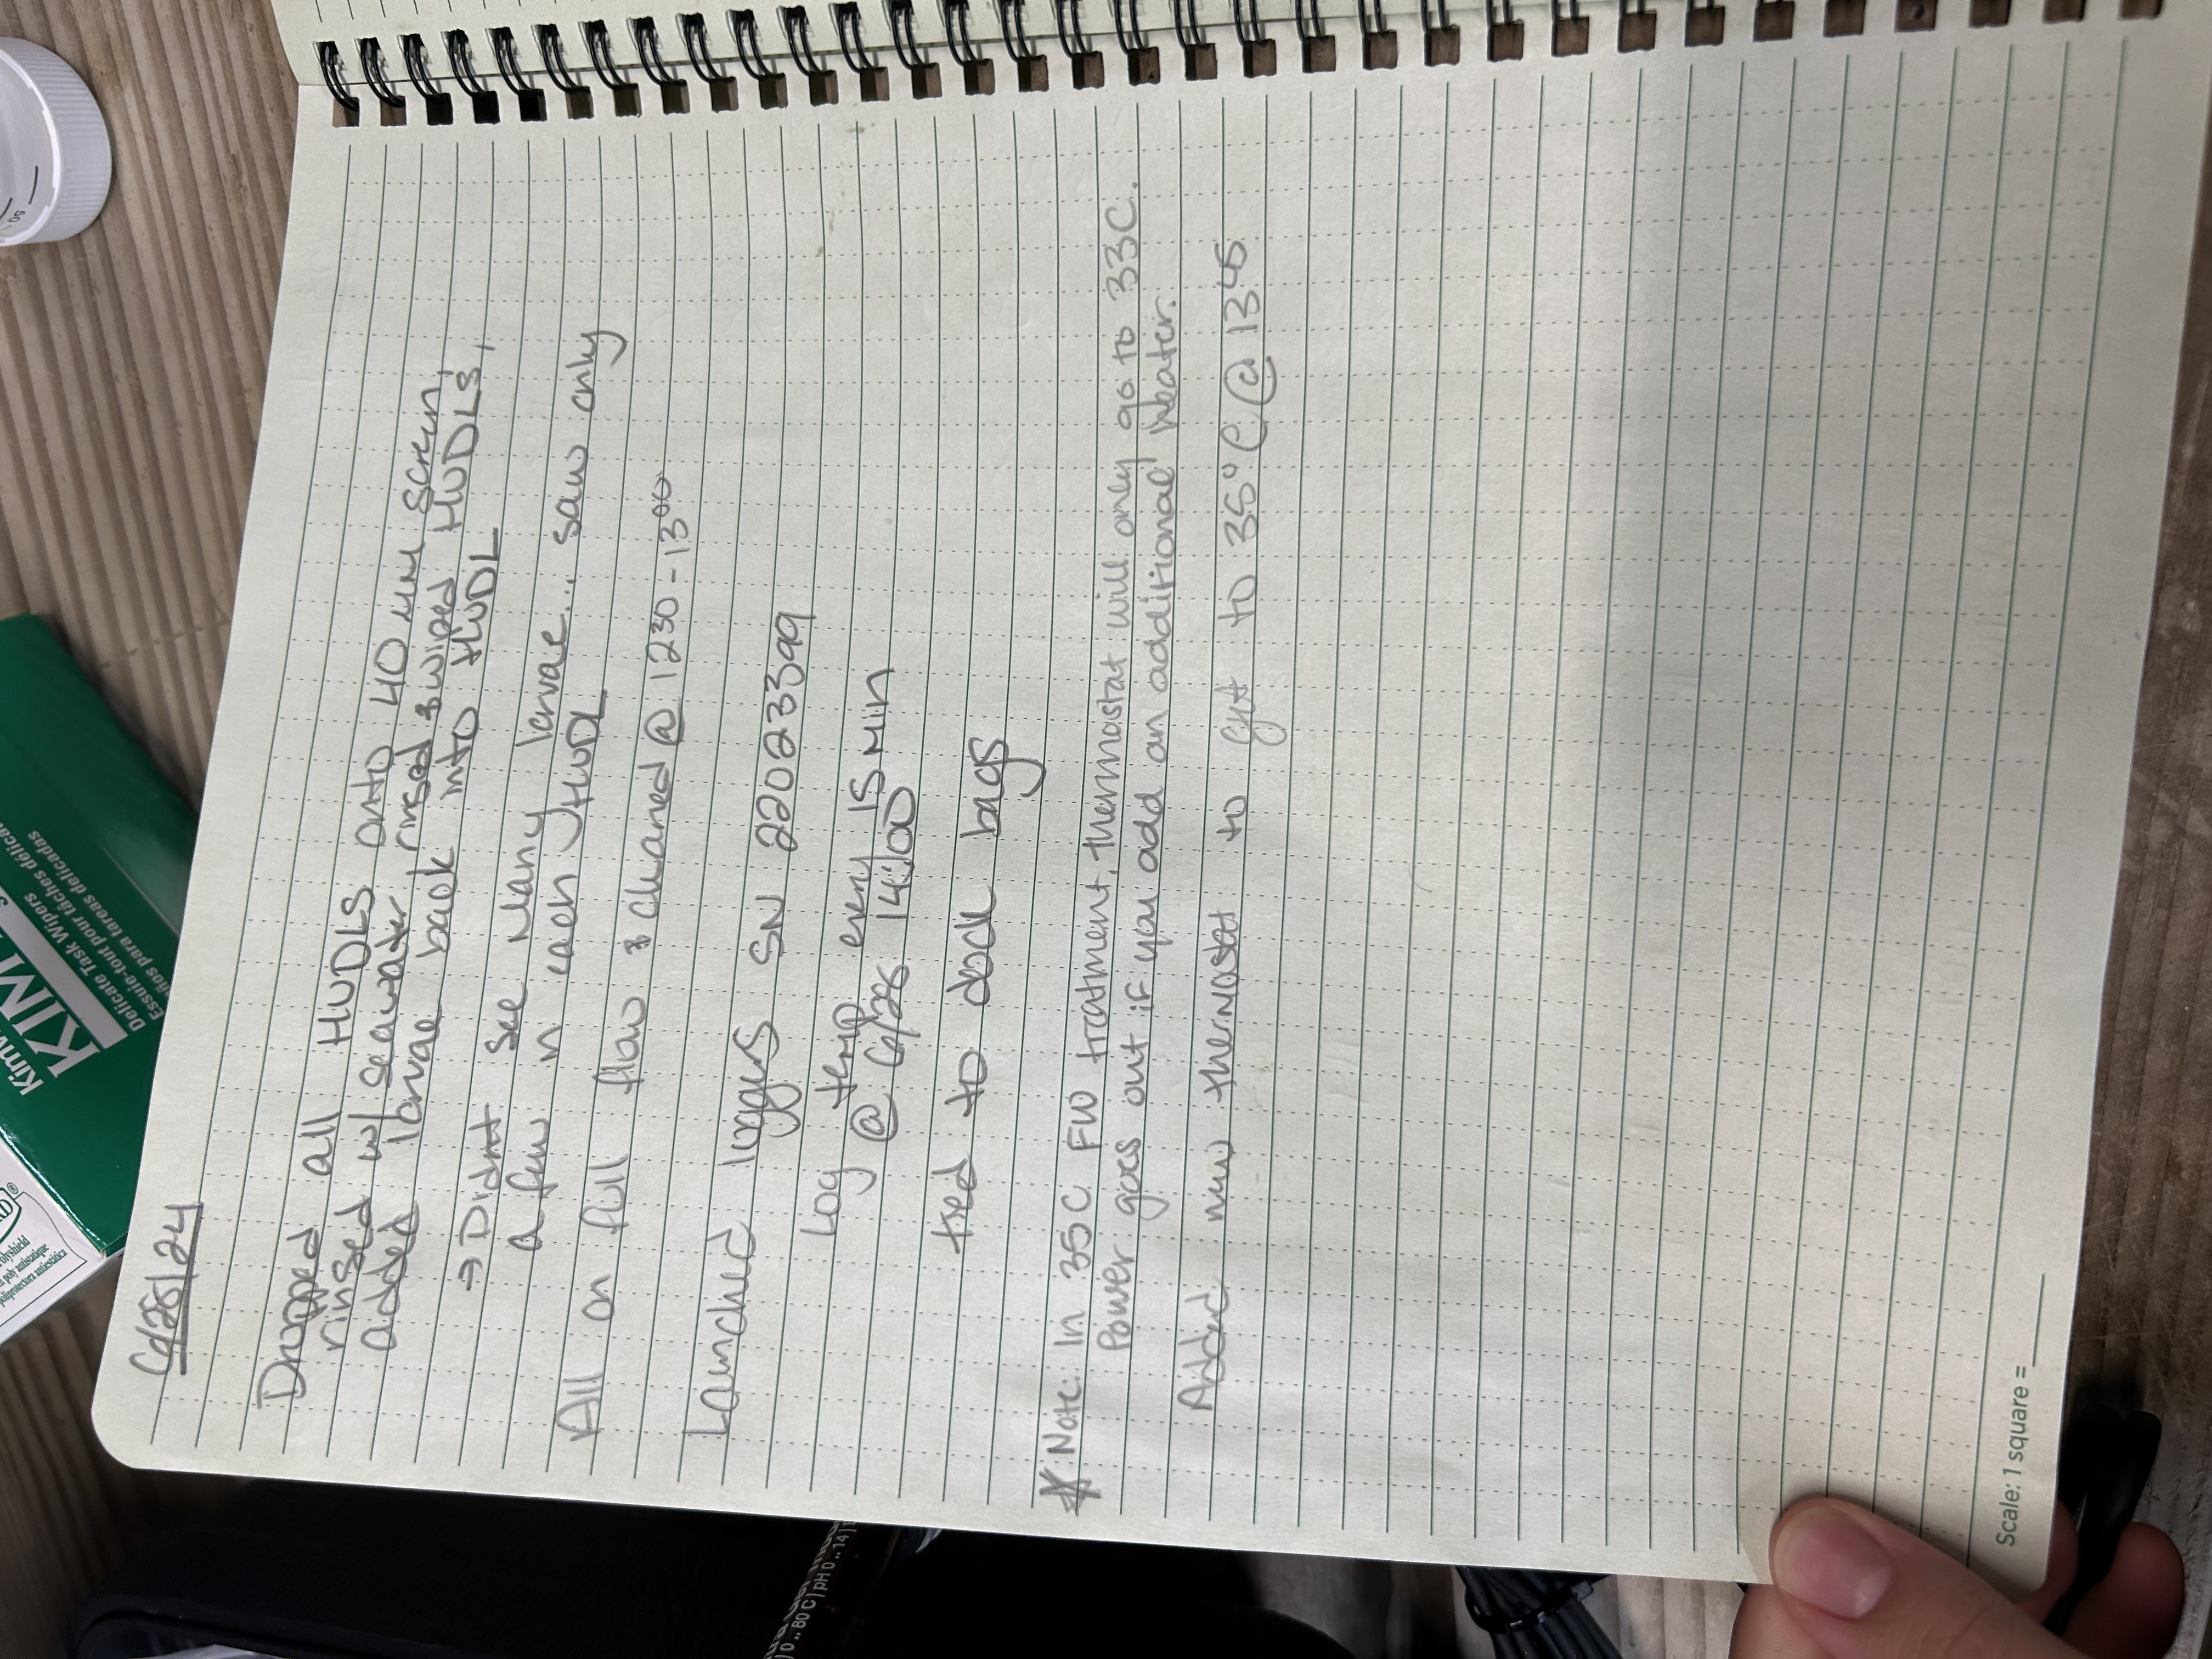 6/28/24
Dropped all HUDLS onto 40 um screen,
rinsed w/ seawater rinsed & wiped HUDLS,
added larvae back into HUDL
→ Didnt see many larvae... saw only
a few in each HUDL
All on full flow & cleaned @ 1230-13⁰⁰
Launched loggers SN 22023399
Log temp every 15 min
@ 6/28 14:00
tied to dock bags
* Note: In 35C FW treatment, thermostat will only go to 33C.
Power goes out if you add an additional heater.
Added new thermostat to get to 35°C @ 13⁴⁵
Scale: 1 square =
Delicate Task Wipers
Essuie-tout pour tâches
Paños para tareas delicadas
50